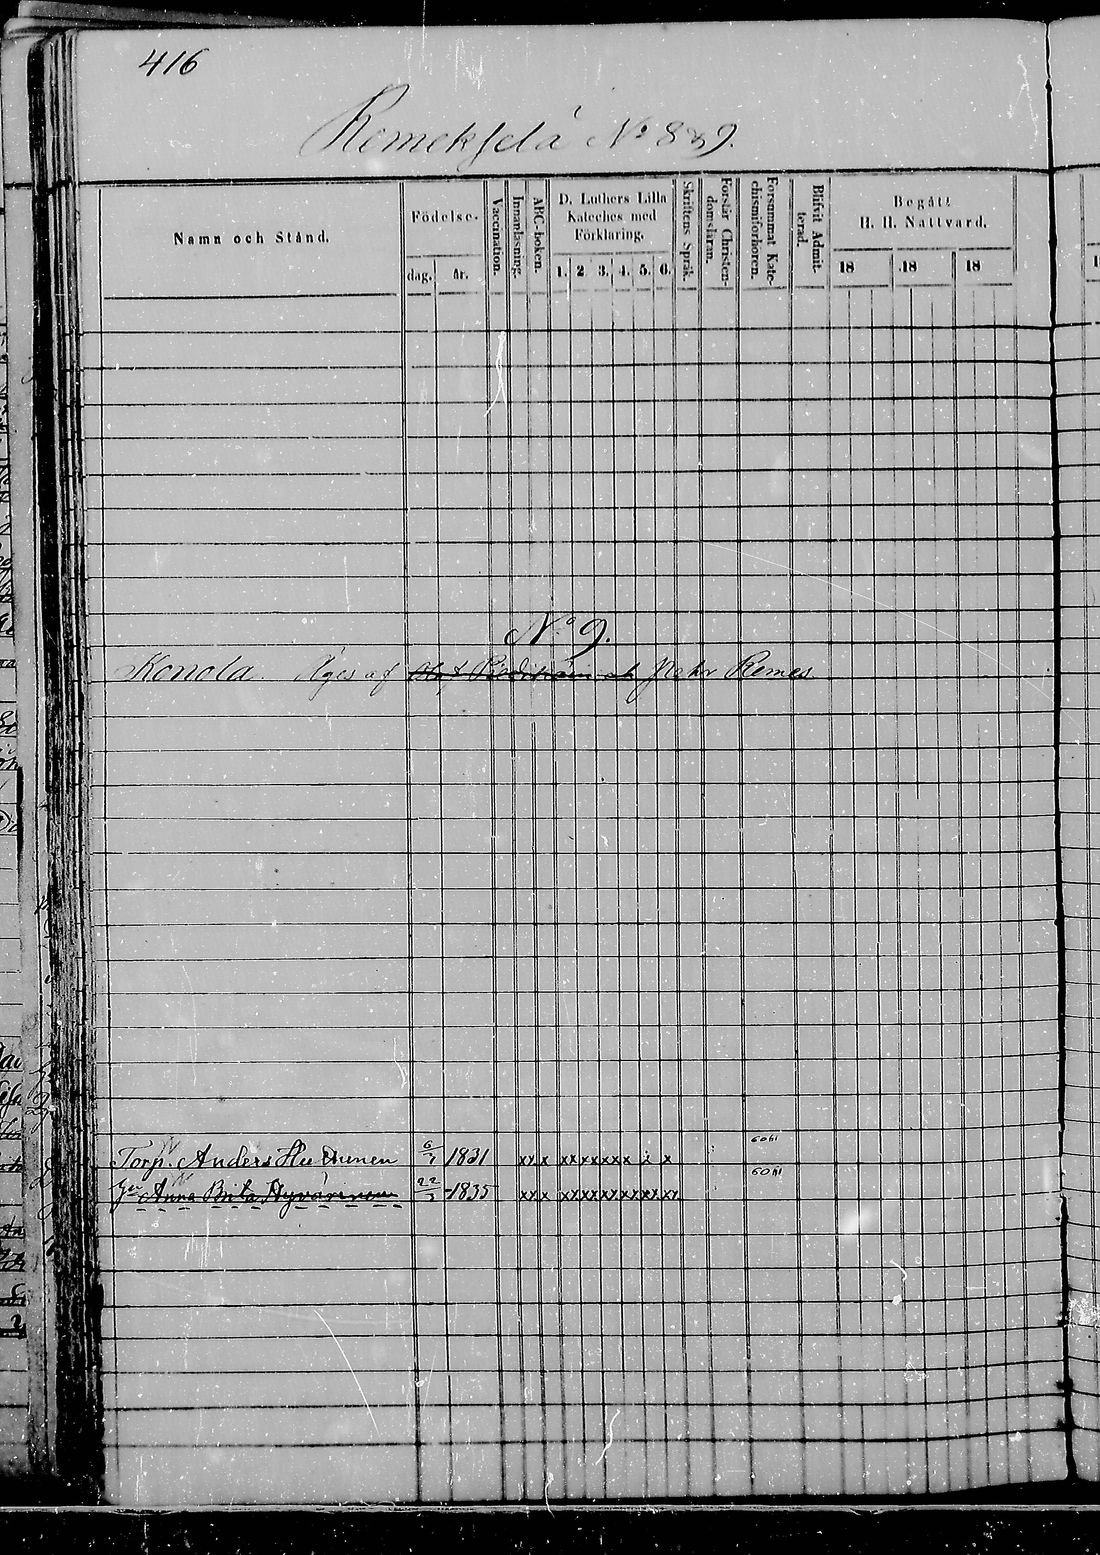 416
Remekselä No 8 & 9.
Namn och Stånd.
Födelse.
dag.
år.
Vaccination.
Innanläsning.
ABC-boken.
D. Luthers Lilla
Kateches med
Förklaring.
1. 2 3. 4. 5. 6.
Skriftens Språk.
Förstår Christen-
domsläran.
Försummat Kate-
chismiförhören.
Blifvit Admit-
terad.
Begått
H. H. Nattvard.
18 18 18
No 9.
Konola. Äges af Petter Remes
Torp. Anders 6/7 1831 xxx xxxxxxx x x
Anna Brita Hyvärinen 22/3 1835 xxx xxxxxxxxxxxx